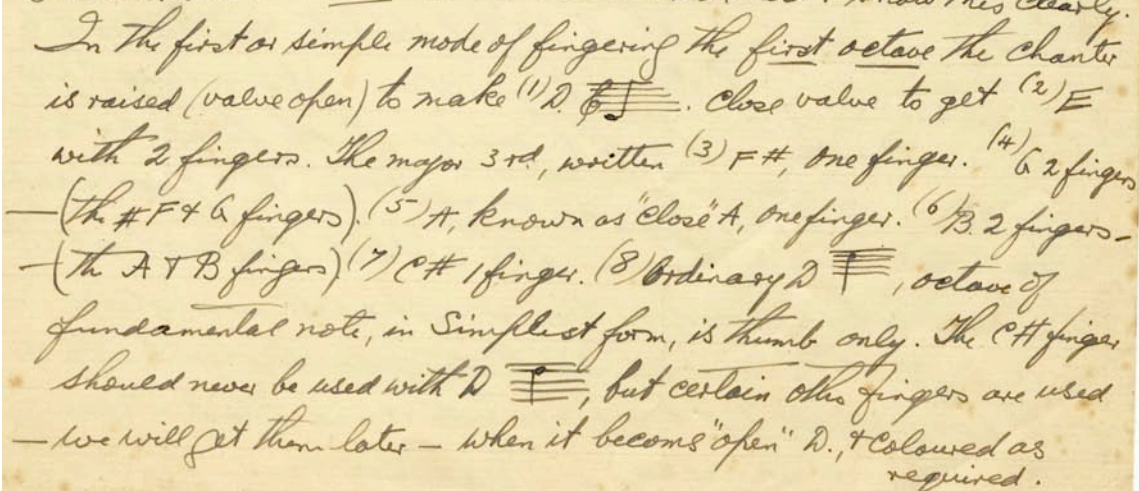 know this clearly.
In the first or simple mode of fingering the first octave the chanter
is raised (valve open) to make (1) D. Close valve to get (2) E
with 2 fingers. The major 3rd, written (3) F#, one finger. (4) G 2 fingers
— (the #F & G fingers). (5) A, known as "close" A, one finger. (6) B. 2 fingers –
– (th A & B fingers) (7) C# 1 finger. (8) Ordinary D , octave of
fundamental note, in Simplest form, is thumb only. The C# finger
should never be used with D , but certain othr fingers are used
– we will get them later – when it becoms "open" D., & coloured as
required.